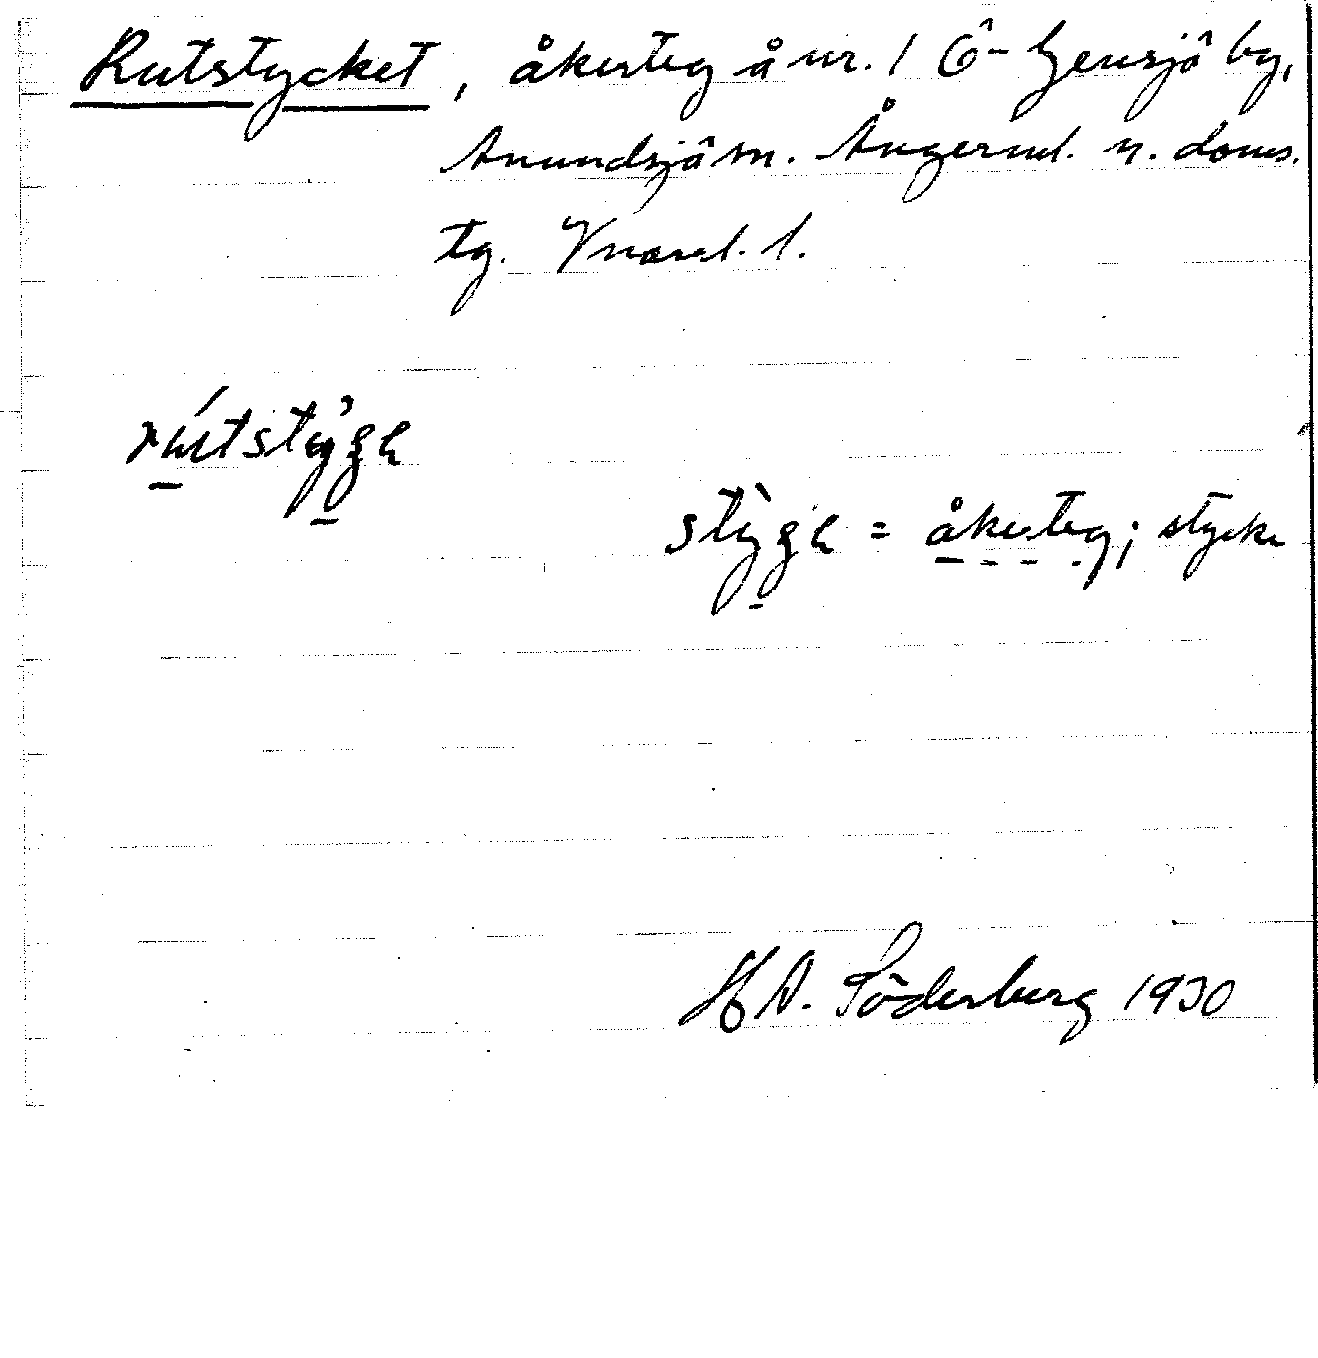 Rutstycket, åkerteg å nr. 1 Ö-Gensjö by,
Anundsjö sn. Ångerml. n. doms.
tg. Vnorrl. l.
stỳgɛ = åkerteg; stycke
H A. Söderberg 1930